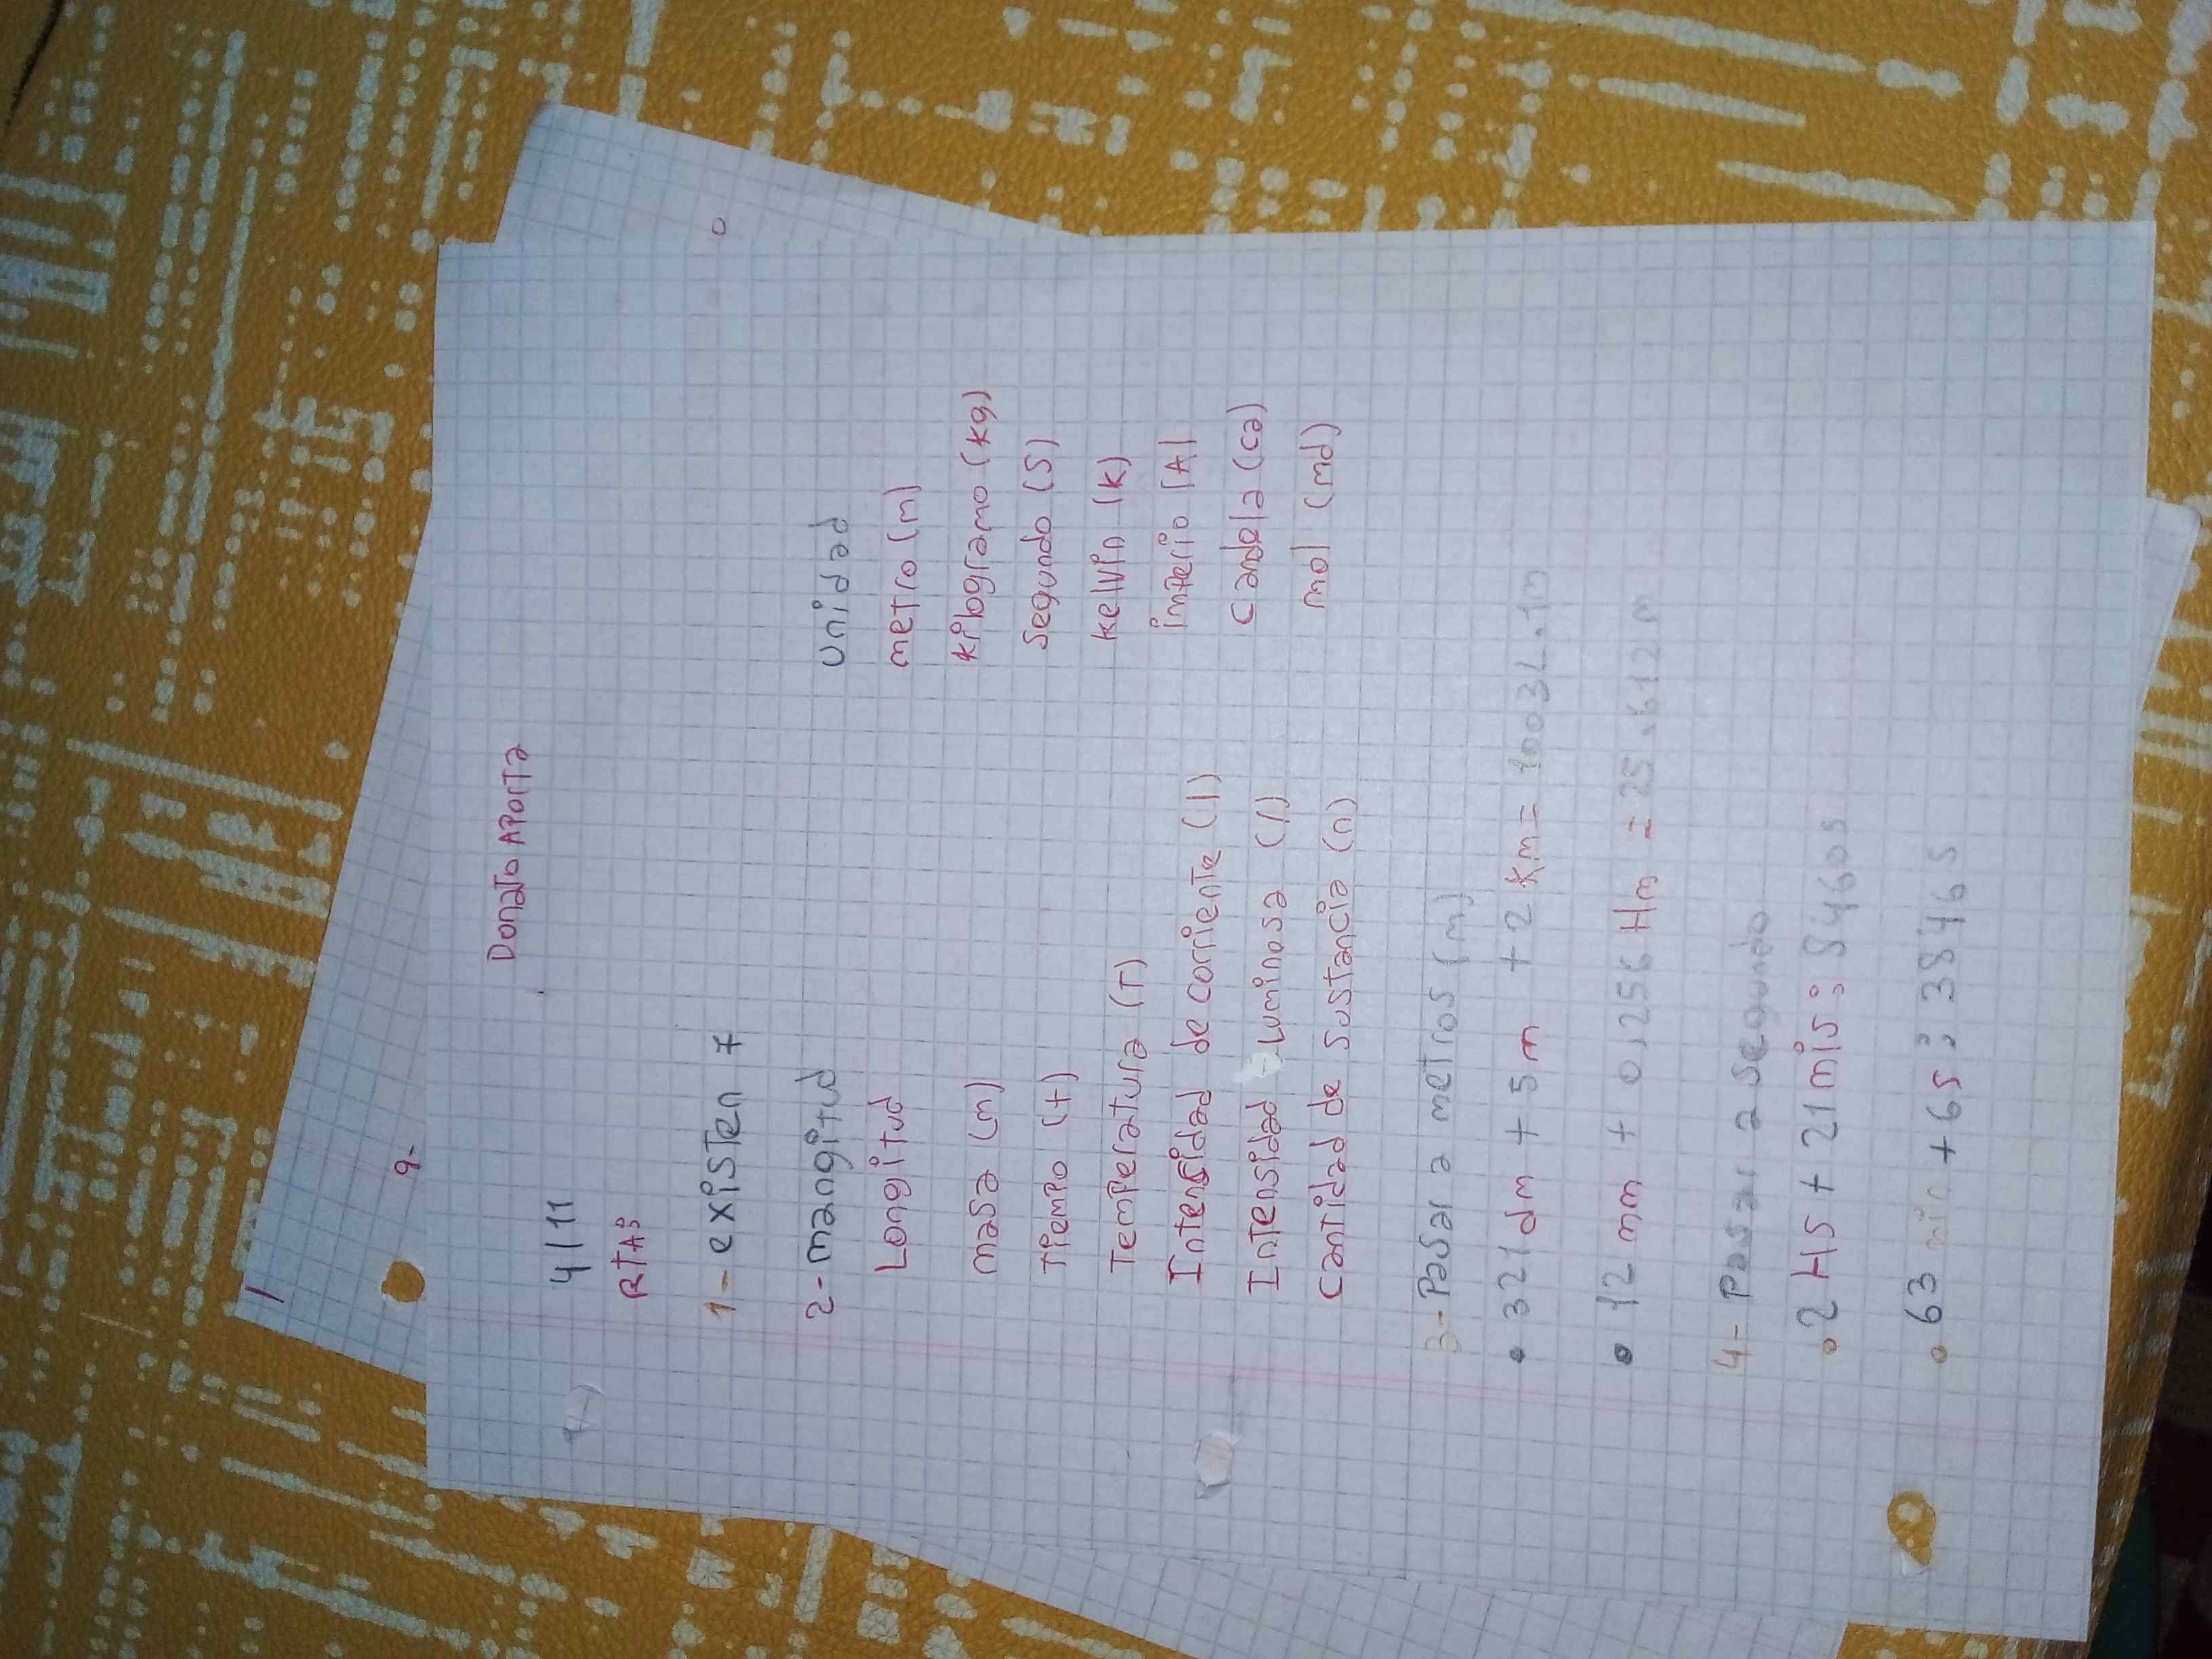 Donato Aporta
4/11
RTAS
1- existen 7
2- mangitud unidad
Longitud metro (m)
masa (m) kilogramo (kg)
Tiempo (t) Segundo (S)
Temperatura (T) kelvin (k)
Intensidad de corriente (I) imperio (A)
Intensidad Luminosa (I) candela (ca)
Cantidad de Sustancia (n) mol (md)
3- Pasar a metros (m)
• 321 dm + 5m + 2 km =
• 12 mm + 0,256 Hm = 25,612 m
4- Pasar a segundo
• 2 HS + 21 mis: 8460s
• 63 min + 6s: 3846 s
9-